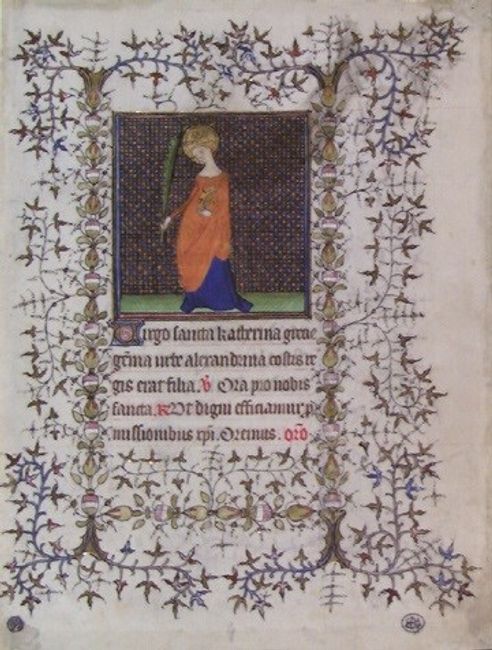 Virgo sancta katherina grecie
gema urbe alexandrina costis re
gis erat filia. V Ora pro nobis
sancta. R Ut digni efficiamur p
missionibus xpi. Oremus. oro